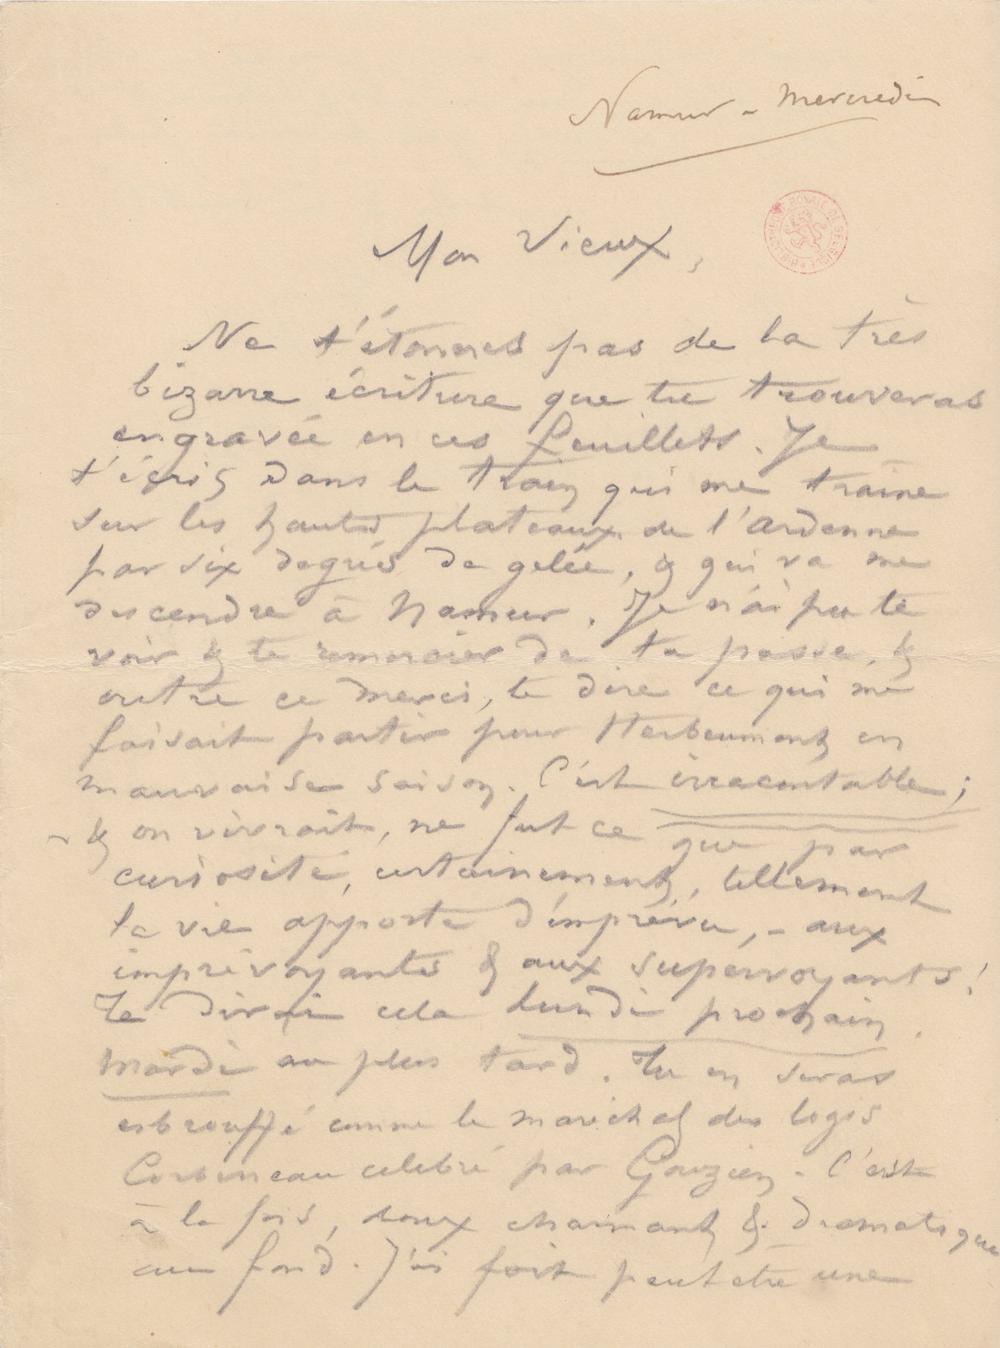 Namur - Mercredi
BIBLIOTHEQUE ROYALE DE BELGIQUE
Mon Vieux,
Ne t'étonnes pas de la très
bizarre écriture que tu trouveras
engravée en ces feuillets. Je
t'écris dans le train qui me traine
sur les hauts plateaux de l'Ardenne
par six degrés de gelée, & qui va me
descendre à Namur. Je n'ai pu te
voir & te remercier de ta passe, &
outre ce merci, te dire ce qui me
faisait partir pour Herbeumont en
mauvaise saison. C'est irracontable;
& on vivrait, ne fut ce que par
curiosité, certainement, tellement
la vie apporte d'imprévu, - aux
imprévoyants & aux supervoyants!
Te dirai cela lundi prochain,
Mardi au plus tard. Tu en seras
esbrouffé comme le maréchal des logis
Corbineau célébré par Gouzien. C'est
à la fois, doux charmant & dramatique
au fond. J'ai fait peut etre une